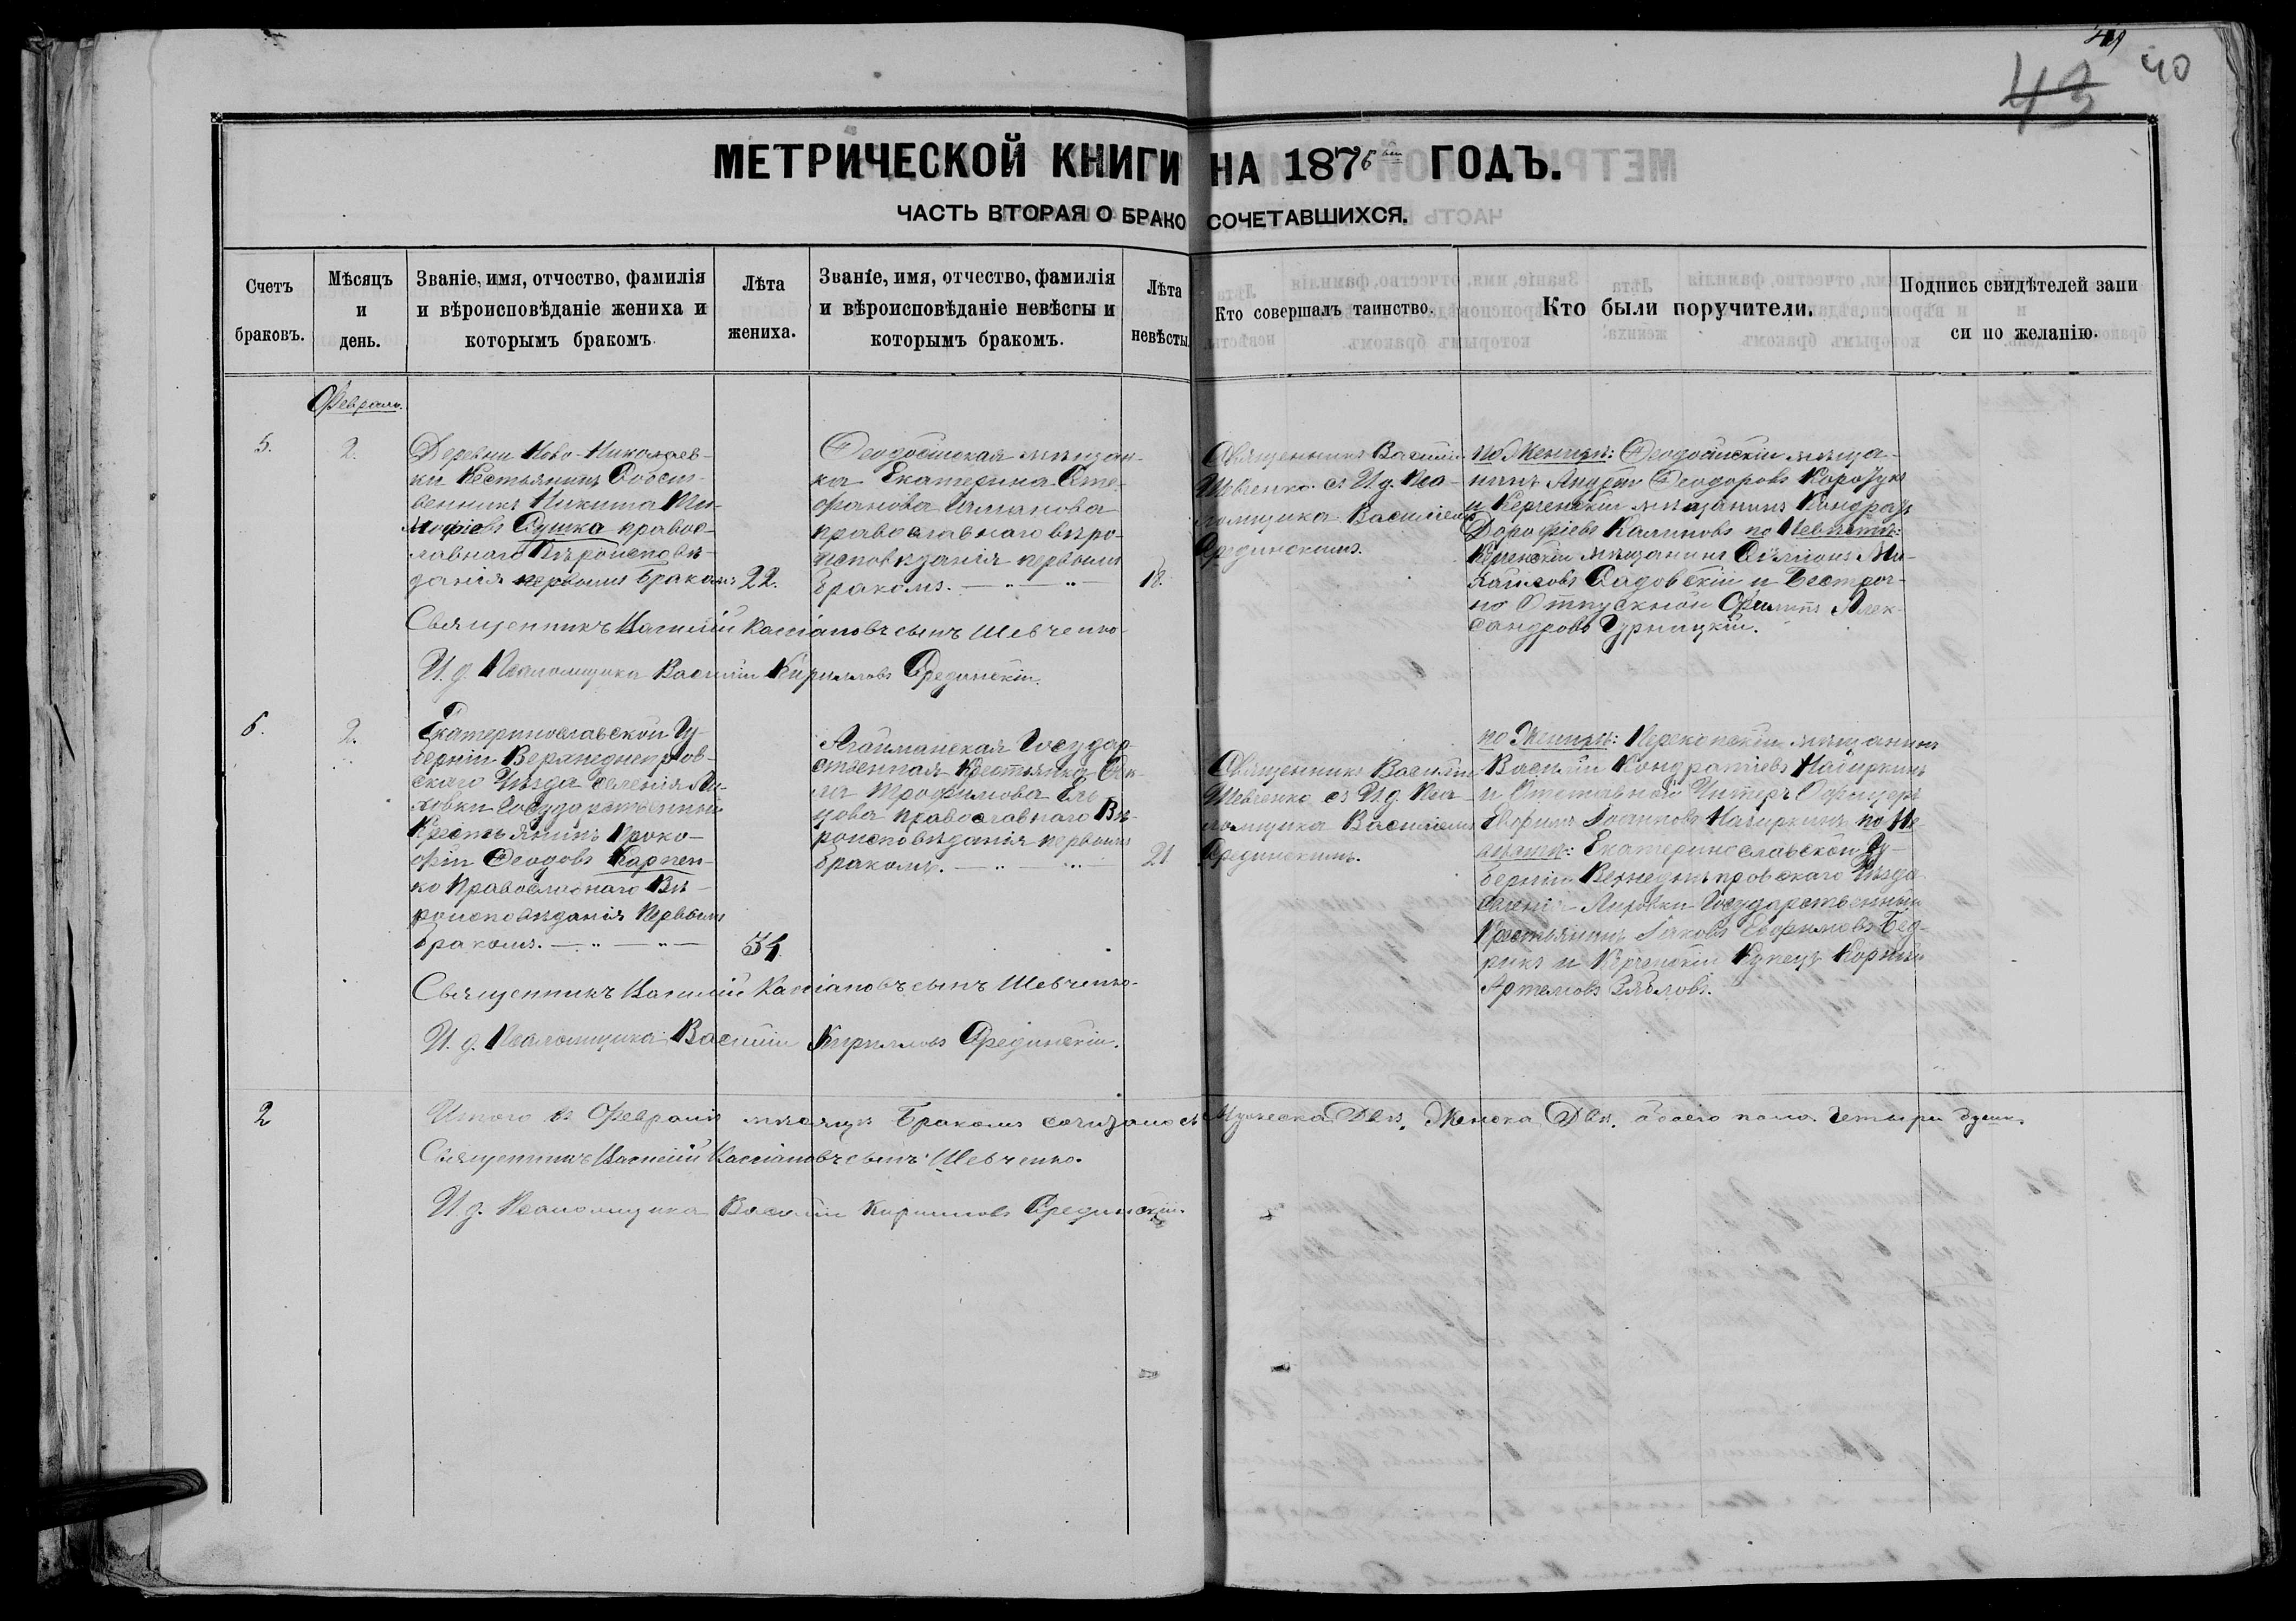 49
43 40
МЕТРИЧЕСКОЙ КНИГИ НА 1876 ГОДЪ.
ЧАСТЬ ВТОРАЯ О БРАКОСОЧЕТАВШИХСЯ.
Счетъ браковъ.
Мѣсяцъ и день.
Званіе, имя, отчество, фамилія и вѣроисповѣданіе жениха и которымъ бракомъ
Лѣта жениха.
Званіе, имя, отчество, фамилія и вѣроисповѣданіе невѣсты и которымъ бракомъ.
Лѣта невѣсты.
Кто совершалъ таинство.
Кто были поручители.
Подпись свидѣтелей записи по желанію.
Февраль.
5.
2.
Деревни Ново-Николаев-
ки Кестьянинъ Собст-
венникъ Никита Ти-
моѳіевъ Сушка правос-
лавнаго Вѣроисповѣ-
данія первымъ Бракомъ
22.
Ѳеодосійская мѣщан-
ка Екатерина Сте-
фанова
православнаго вѣро-
исповѣданія первымъ
бракомъ.
18.
Священникъ Василій
Шевченко съ И. д. Пса-
ломщика Василіемъ
Срединскимъ.
по Женихѣ: Ѳеодосійскій мѣща-
нинъ Андрей Ѳеодоровъ
и Керченскій мѣщанинъ Кондратъ
Дороѳіевъ Калиновъ по Невѣстѣ:
Керченскій мѣщанинъ Симіонъ Ми-
хайловъ Садовскій и Безсроч-
но Отпускной Филиппъ Алек-
сандровъ
Священникъ Василій Кассіановъ сынъ Шевченко.
И. д. Псаломщика Василій Кирилловъ Срединскій.
6.
2.
Екатеринославской Гу-
берніи Верхнеднепров-
скаго Уѣзда Селенія Ли-
ховки Государственный
Крестьянинъ Проко-
фій Ѳеодовъ Карпен-
ко Православнаго Вѣ-
роисповѣданія Первымъ
бракомъ.
34.
Агайманская Государ-
ственная Крестьянка
Трофимова
православнаго Вѣ-
роисповѣданія первымъ
бракомъ.
21
Священникъ Василій
Шевченко съ И. д. Пса-
ломщика Василіемъ
Срединскимъ.
по Женихѣ: Перекопскій мѣщанинъ
Василій Кондратіевъ Начиркинъ
и Отставной Унтеръ Офицеръ
Ефимъ Начиркинъ по Не-
вѣстѣ: Екатеринославской Гу-
берніи Верхнеднѣпровскаго Уѣзда
Селенія Лиховки Государственный
Крестьянинъ Іаковъ Ефимовъ Бед-
рикъ и Керченскій Купецъ Корнилій
Артемовъ Зябловъ.
Священникъ Василій Кассіановъ сынъ Шевченко.
И. д. Псаломщика Василій Кирилловъ Срединскій.
2
Итого въ Февралѣ мѣсяцѣ Бракомъ сочиталось Мужеска Два, Женска Двѣ, обоего пола четыри души.
Священникъ Василій Кассіановъ сынъ Шевченко.
И. д. Псаломщика Василій Кирилловъ Срединскій.